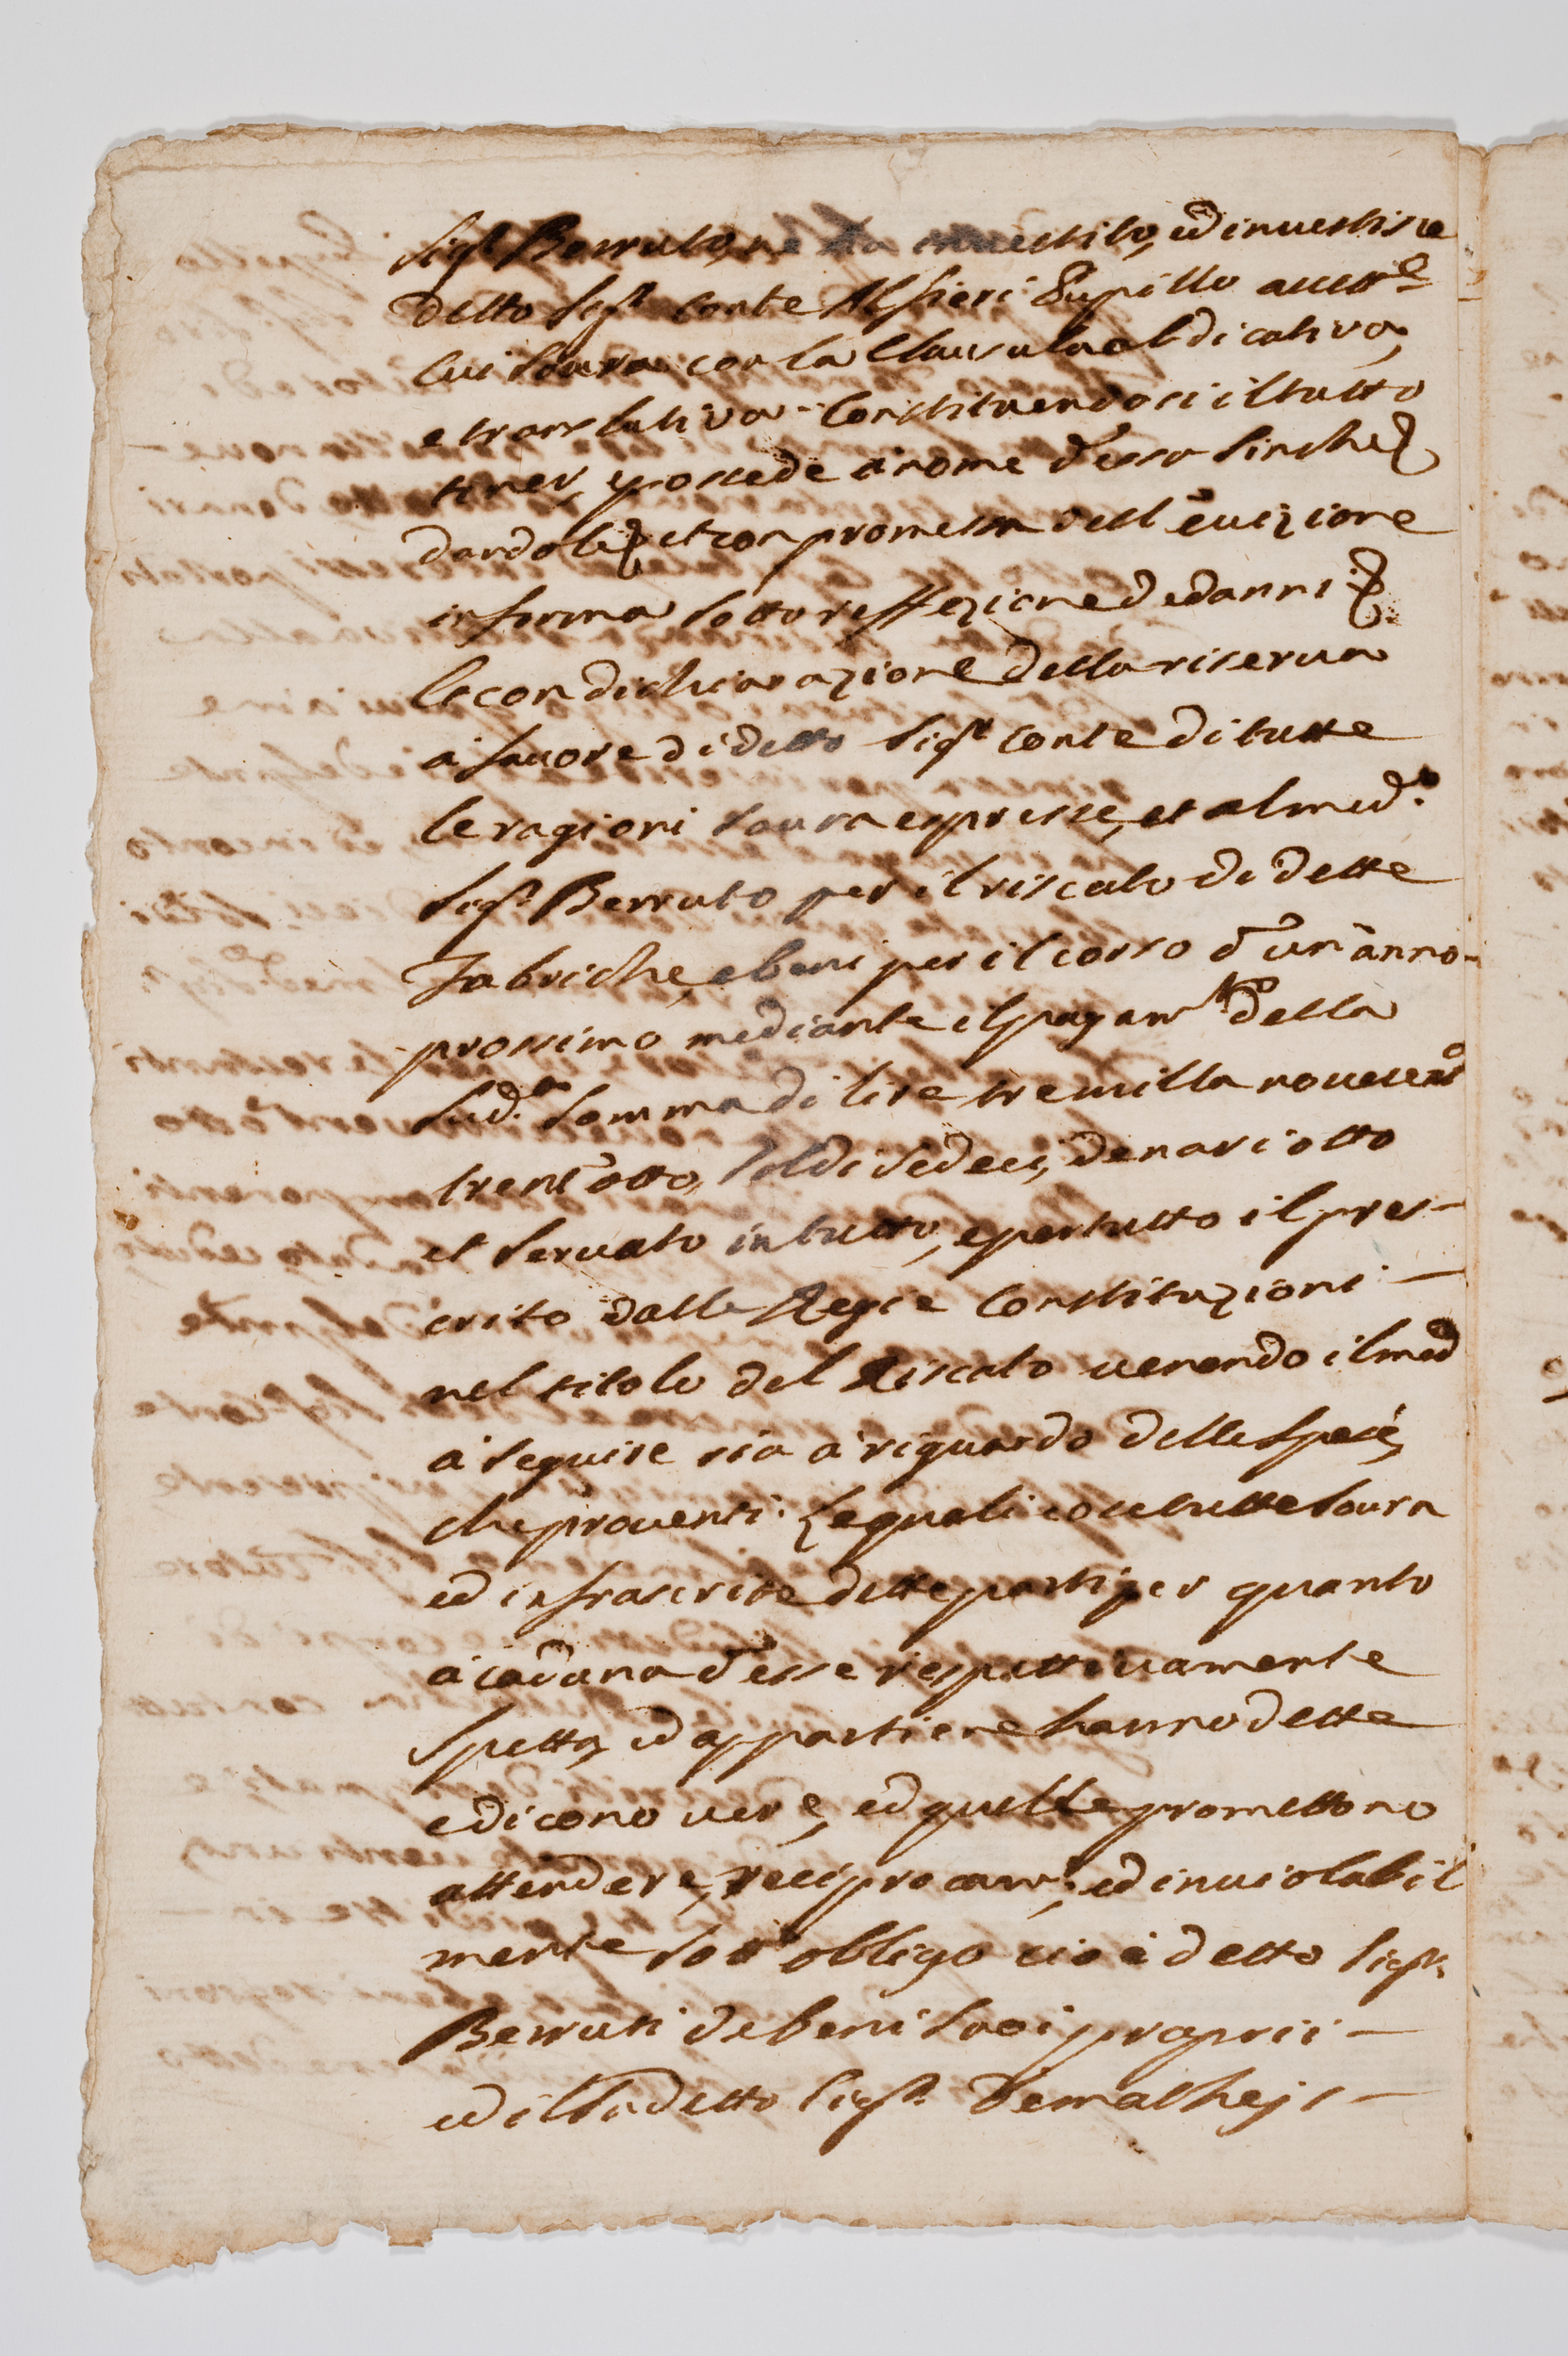 Sigr Berruto, ne ha investito, ed investisce
detto Sigr Conte Alfieri Pupillo accettte
lui soura con la Clausula abdicativa,
e translativa. Constituendosi il tutto
tener, e possede à nome d'esso sinche
dandoli et con promessa dell'evizione
in forma sotto reffezione de danni
le con dichiarazione della riserva
à favore di detto Sigr Conte di tutte
le ragioni soura espresse, et al med.o
Sigr Berruto per il riscato di dette
Fabriche, e beni per il corso d'un'anno
prossimo mediante il pagamto della
sud.a somma di lire tremilla novecento
trent'otto, soldi sedeci, denari otto
et servato in tutto, e per tutto il pres-
crito dalle Regie Constituzioni
nel titolo del Riscato venendo il med
à seguire sia à riguardo delle spese,
che proventi. Le quali cose tutte soura
ed infrascrite dette parti per quanto
à caduna d'esse rispettivamente
spetta, ed appartiene hanno dette
e dicono vere, ed quelle promettono
attendere, reciprocamte, ed inviolabil
mente sott'obligo cioè detto Sigr
Berruti de beni suoi proprii
ed il sudetto Sigr Demathejs